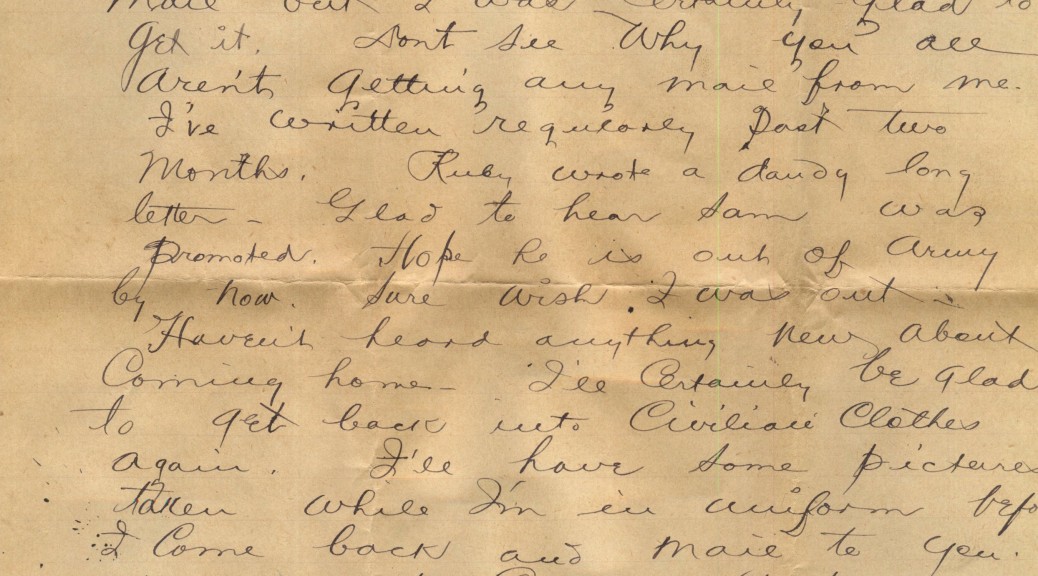 Mail but I was Certainly Glad to
Get it. Dont See Why you all
Aren't Getting any mail from me.
I've written regularly Past two
Months. Ruby wrote a dandy long
letter - Glad to hear Sam was
Promoted. Hope he is out of Army
by now. Sure wish I was out -
Haven't heard anything New About
Coming home - I'll Certainly be Glad
to get back into Civilian Clothes
Again. I'll have some pictures
taken while I'm in uniform befo
I Come back and Mail to you.